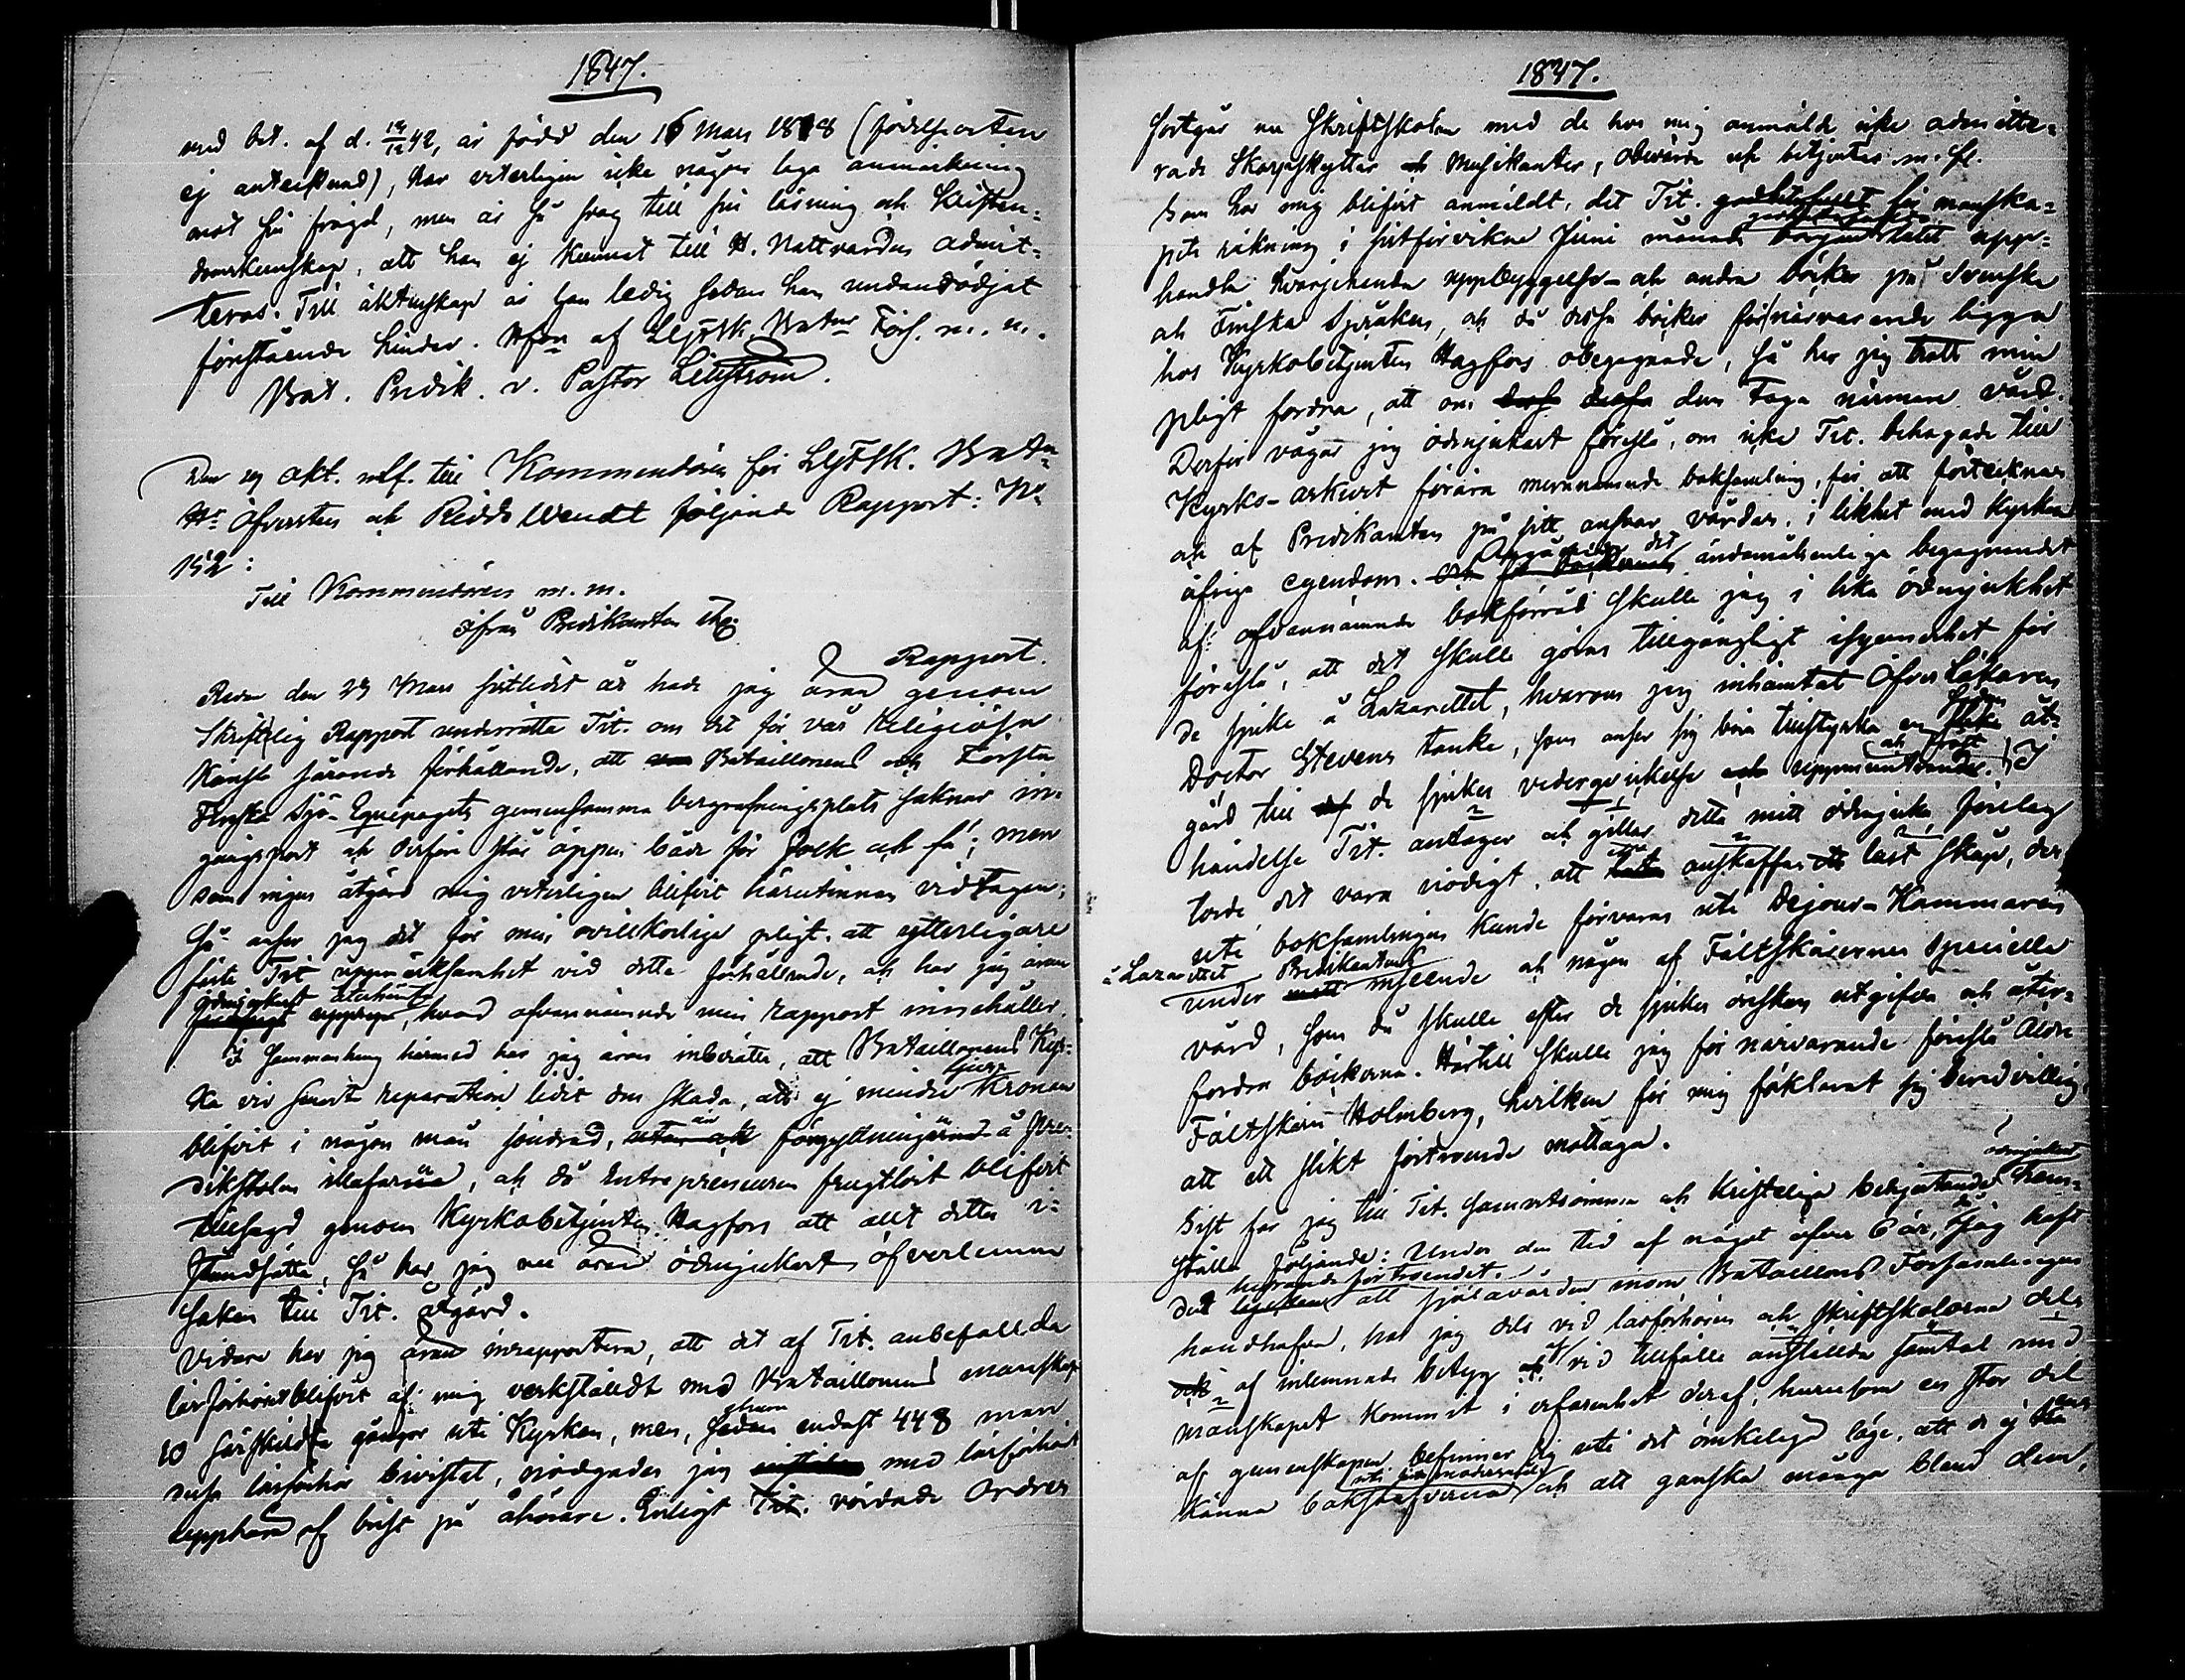 1847.
med bet. af d. 19/12 42, är född den 16 Mars 1818 (födelseorten
ej antecknad), har veterligen icke någon laga anmärkning
mot sin frägd, men är så svag till sin läsning och Kristen-
domskunskap, att han ej kunnat till H. Nattvarden admit-
teras. Till äktenskap är han ledig sedan han undanrödjat
förestående hinder. Hfors af Förs. m. m.
Bat. Predik. v. Pastor Lillström.
Den 29 Okt. till Kommendören för
Hr Öfversten och Ridd. Wendt följande Rapport: No
152:
Till Kommendören m. m.
ifrån Predikanten
Rapport.
Redan den 29 Mars sistlidet år hade jag äran genom
Skriftlig Rapport underrätta Tit. om det för vår religiösa
känsla sårande förhållande, att Bataillonens och Första
Finska Sjö-Equipagets gemensamma begrafningsplats saknar in-
gångsport och derföre står öppen både för folk och fä; men
som ingen åtgärd mig veterligen blifvit härutinnan vidtagen;
Så anser jag det för min ovillkorliga pligt att ytterligare
fästa Tit uppmärksamhet vid detta förhållande, och har jag äran
ödmjukast
hvad ofvannämnde min rapport innehåller.
I Sammanhang härmed har jag äran inberätta, att Bataillonens Kyr-
ka vid senaste reparation lidit den skada, att ej mindre Kronan
blifvit i någon mån söndrad, än förgyllningarna å Pre-
dikstolen illa farna, och då Entrepreneuren frugtlöst blifvit
tillsagd genom Kyrkobetjenten Hagfors att allt detta i-
ståndsätta, så har jag nu äran ödmjukast öfverlemna
saken till Tit. åtgärd.
Vidare har jag äran inrapportera, att det af Tit. anbefallda
läsförhöret blifvit af mig verkställdt med Bataillonens manskap
10 särskildta gånger uti Kyrkan, men, sedan endast 448 man
desse läsförhör bivistat, nödgades jag med läsförhöret
upphöra af brist på åhörare. Enligt Tit. vördade Ordres
1847.
fortgår nu Skriftskolan med de hos mig anmälde icke admitte-
rade Skarpskyttar och Musikanter, m. fl.
Som hos mig blifvit anmäldt, det Tit. för manska-
pets räkning i sistförvikne Juni månad låtit upp-
handla hvarjehanda uppbyggelse- och andra böcker på Svenska
och Finska Språken, och då dessa böcker för närvarande ligga
hos Kyrkobetjenten Hagfors obegagnade, så har jag trott min
pligt fordra, att om dem taga närmare vård.
Derför vågar jag ödmjukast föreslå, om icke Tit. behagade till
Kyrko-arkivet förära mernämnde boksamling, för att förtecknas
och af Predikanten på sitt ansvar vårdas, i likhet med Kyrkans
öfriga egendom. Angående det ändamålsenliga begagnandet
af ofvannämnde bokförråd skulle jag i lika ödmjukhet
föreslå, att det skulle göras tillgängligt isynnerhet för
de sjuke å Lazarettet, hvarom jag inhämtat Öfver Läkaren
Doctor Stevens tanke, som anser sig böra tillstyrka en sådan åt-
gärd till de sjukes vederqvickelse och uppmuntrande. I
händelse Tit. antager och gillar detta mitt ödmjuka förslag
torde det vara nödigt, att anskaffa ett låst skåp, der-
uti boksamlingen kunde förvaras uti Dejour-Kammaren
å Lazarettet
under Predikantens inseende och någon af Fältskärernes speciella
vård, som då skulle efter de sjukes önskan utgifva och åter-
fordra böckerna. Härtill skulle jag för närvarande föreslå Äldre
Fältskärn Holmberg, hvilken för mig förklarat sig beredvillig,
att ett slikt förtroende mottaga.
Sist får jag till Tit. samvetsömma och kristeliga behjertande ödmjukast fram-
ställa följande: Under den tid af något öfver 6 år, jag haft
det hedrande förtroendet att själavården inom Bataillons Församlingen
handhafva, har jag dels vid läsförhören och skriftskolorna dels
af inlemnade betyg vid tillfälle anställda samtal med
manskapet kommit i erfarenhet deraf, hurusom en stor del
af gemenskapen befinner sig uti det ömkeliga läge, att de ej ens
känna bokstäfverna och att ganska många bland dem,